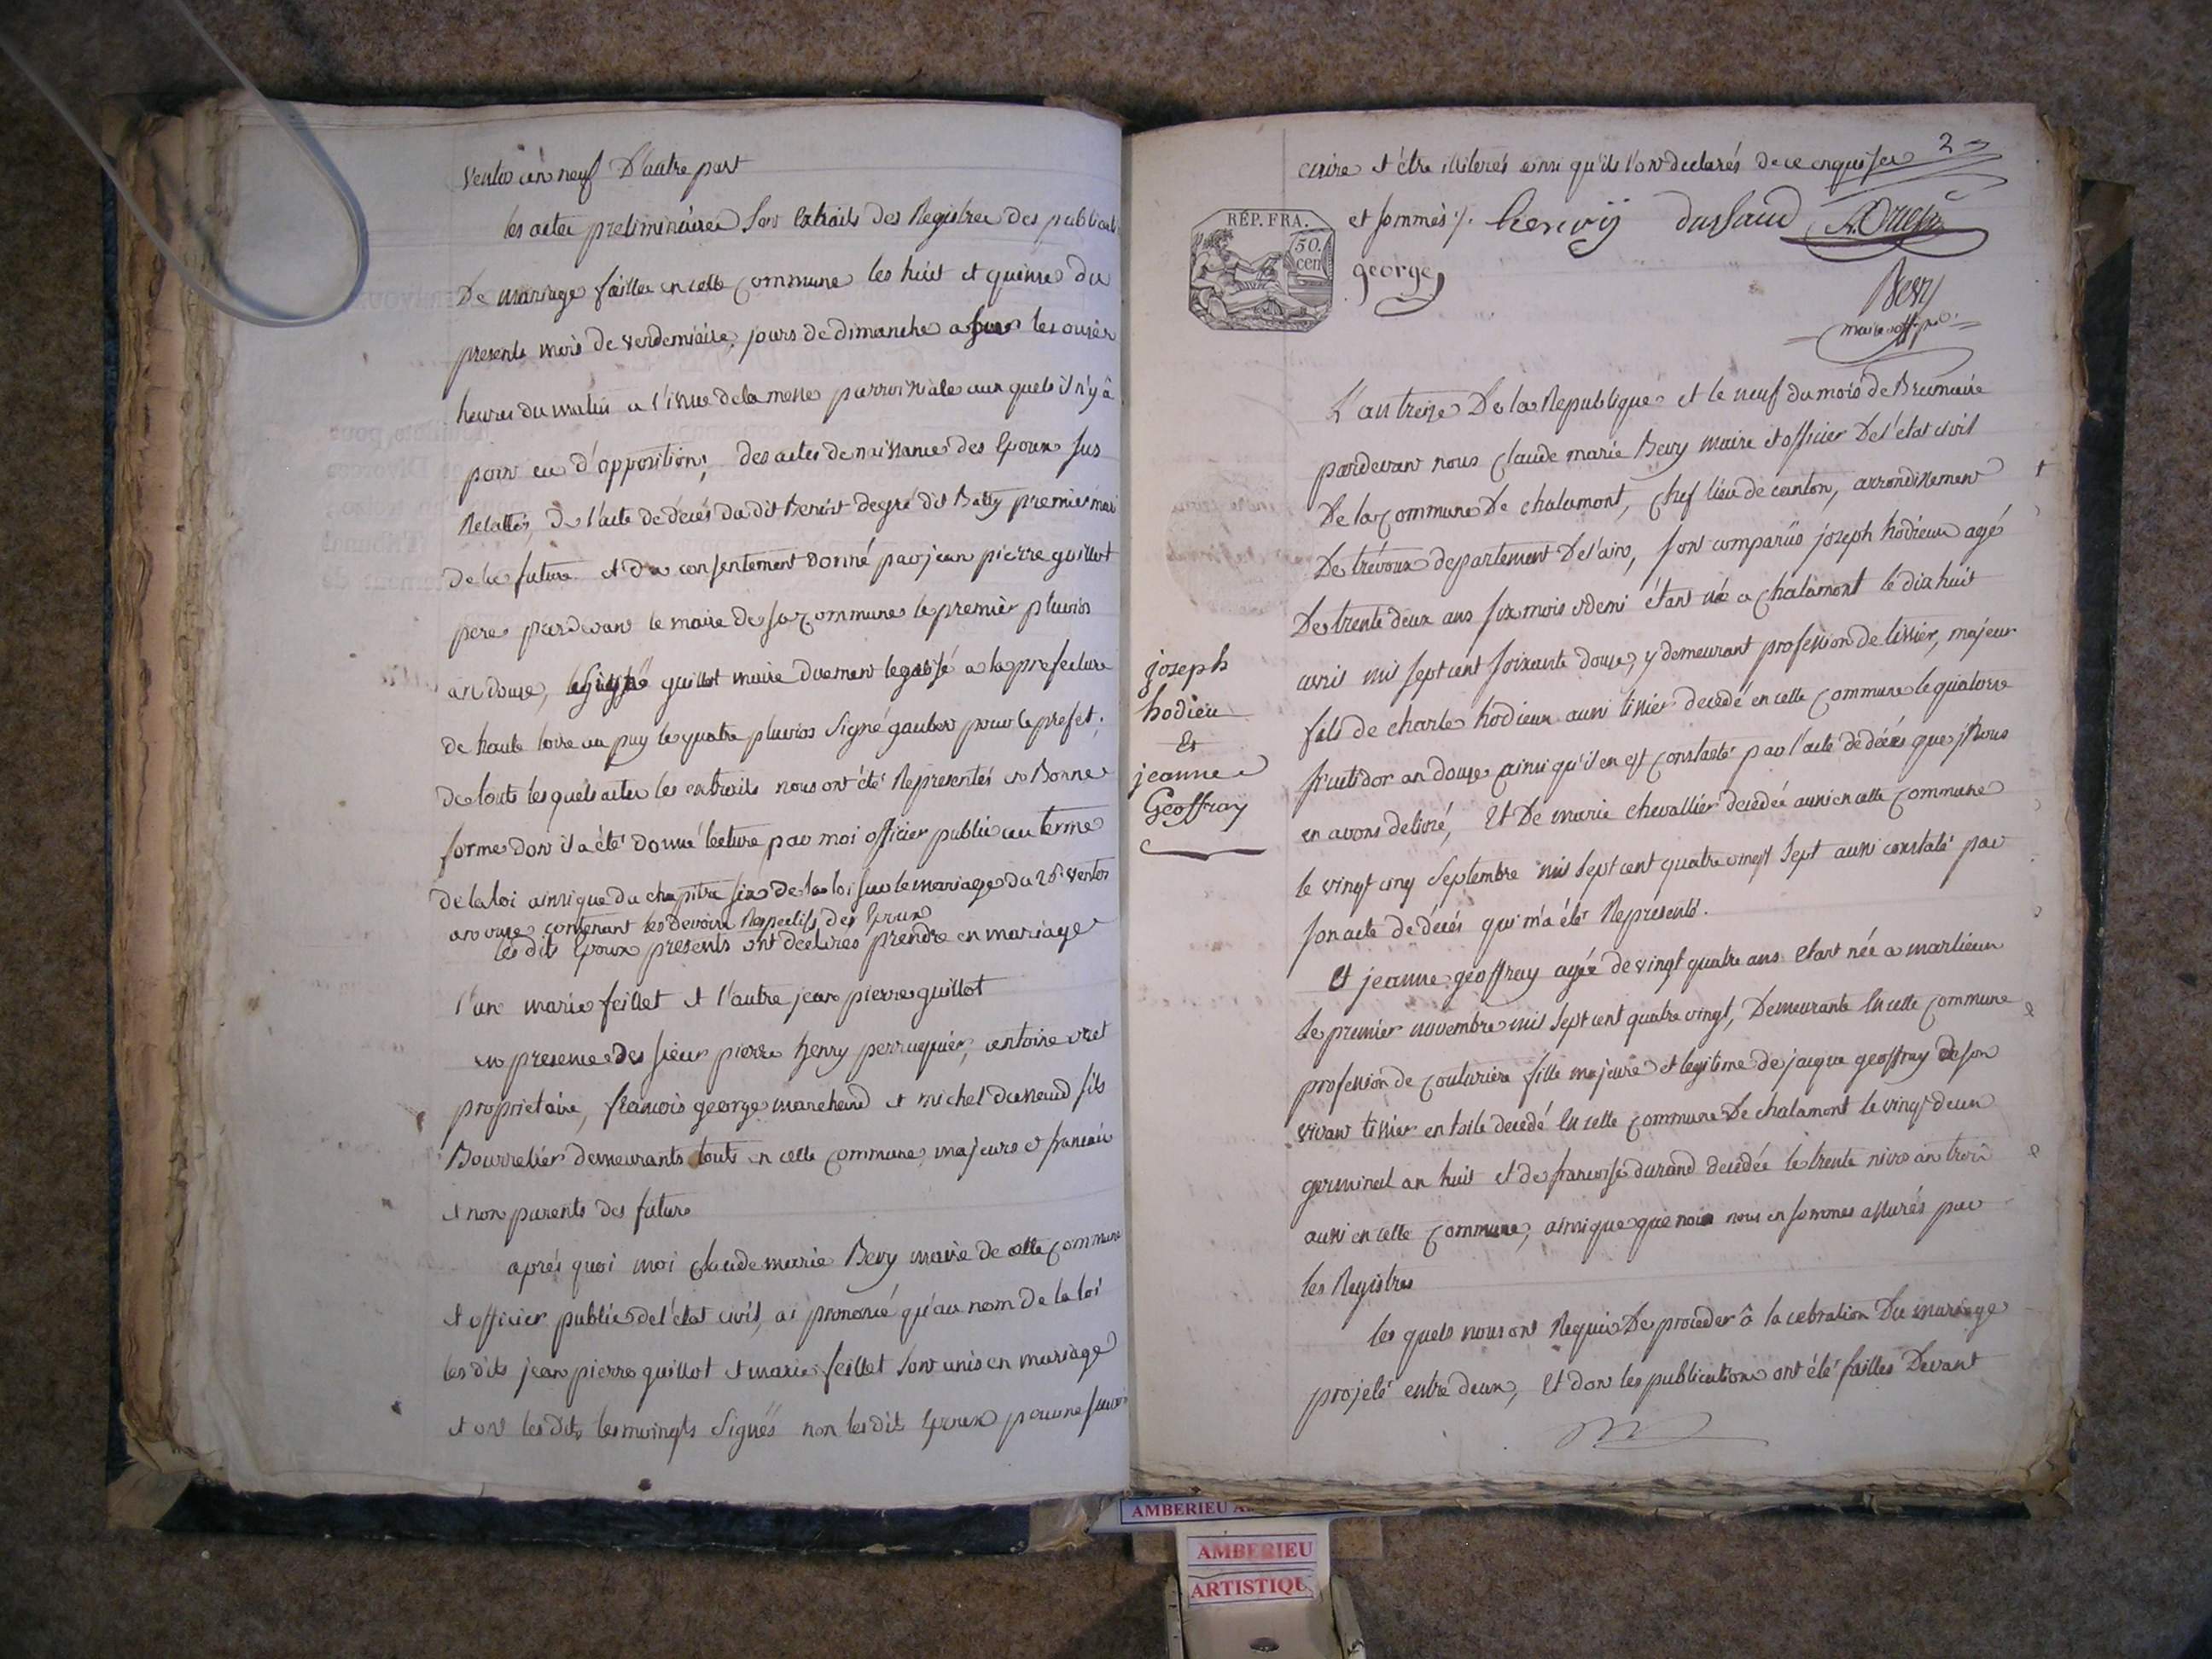 Ventos an neuf D'autre part
les actes preliminaires Sont Extraits des Registres des publicati
De mariage faittes en cette commune les huit et quinze du
present mois de vendemiaire, jours de dimanche a les onzes
heures du matin a l'issue de la messe parroissiale aux quels il n'y à
point eu d'opposition, des actes de naissance des Epoux sus
Relattés, De l'acte de décés du dit Benoit degré dit Batty premier mari
de la future et du consentement donné par jean pierre guillot
pere pardevant le maire de sa commune le premier pluvios
an douze, Signé guillot maire duement legalisé a la prefecture
de haute loire au puy le quatre pluvios Signé gaubert pour le prefet.
de touts les quels actes les extraits nous ont été Representés en Bonne
forme dont il a été donné lecture par moi officier public au terme
de la loi ainsi que du chapitre six de la loi sur le mariage du 26e ventos
an onze contenant les devoirs Respectifs des Epoux
les dits Epoux presents ont declarés prendre en mariage
l'un marie feillet et l'autre jean pierre guillot
en presence des sieur pierre henry perruquier, antoine
propriétaire, francois george marchand et michel dussaud fils
Bourrelier demeurants touts en cette commune, majeurs et francais
et non parents des futurs
aprés quoi moi claude marie Bevy maire de cette commune
et officier public de l'état civil, ai prononcé qu'au nom de la loi
les dits jean pierre guillot et marie feillet sont unis en mariage
et ont les dits temoingts Signés non les dits Epoux pour ne savoir
2
ecrire et être illiterés ainsi qu'ils l'ont declarés de ce enquis
et sommés /. henry dussaud
RÉP. FRA.
50.
cen
george
Bevy
maire off. p.
L'an treize De la Republique et le neuf du mois de Brumaire
pardevant nous Claude marie Bevy maire et officier De l'état civil
De la commune De chalamont, chef lieu de canton, arrondissement
De trévoux departement De l'ain, sont comparüs joseph hodieux agé
De trente deux ans six mois et demi étant né a chalamont le dix huit
avril mil sept cent soixante douze, y demeurant profession de tissier, majeur
fils de charle hodieux aussi tissier decedé en cette commune le quatorze
fructidor an douze ainsi qu'il en est constaté par l'acte de décés que nous
en avons delivré, Et De marie chevallier decedée aussi en cette commune
le vingt cinq Septembre mil sept cent quatre vingt sept aussi constaté par
son acte de décés qui m'a été Représenté.
Et jeanne geoffray agée de vingt quatre ans etant née a marlieux
le premier novembre mil sept cent quatre vingt, Demeurante En cette commune
profession de couturiere fille majeure et legitime de jacque geoffray de son
vivant tissier en toile decedé En cette commune De chalamont le vingt deux
germinal an huit et de francoise durand decedée le trente nivos an trois
aussi en cette commune, ainsi que que nous nous en sommes assurés par
les Registres
les quels nous ont Requis De proceder à la cebration Du mariage
projeté entre deux, Et dont les publications ont été faittes Devant
joseph
hodieu
Et
jeanne
Geoffray
AMBERIEU
AMBERIEU
ARTISTIQU